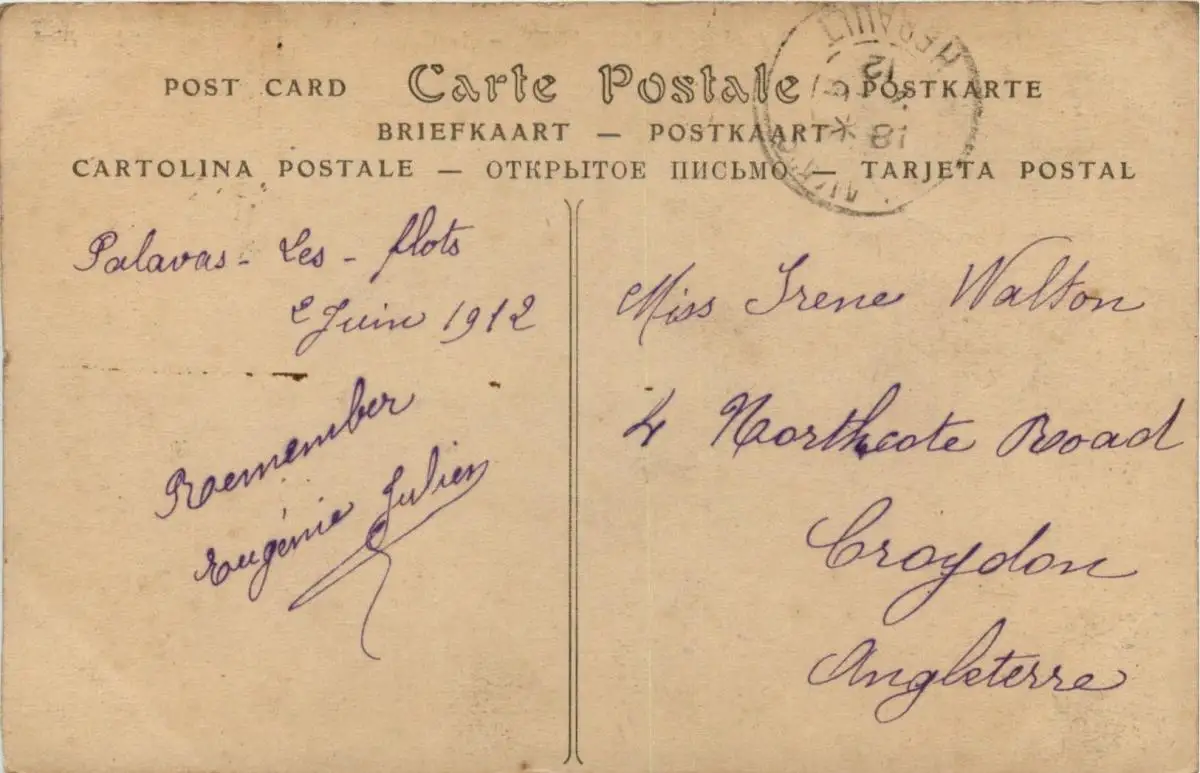 POST CARD Carte Postale POSTKARTE
BRIEFKAART — POSTKAART
CARTOLINA POSTALE — ОТКРЫТОЕ ПИСЬМО — TARJETA POSTAL
HERAULT
12
18
Palavas-Les-flots
2 Juin 1912
Remember
Eugénie Julien
Miss Irene Walton
4 Northcote Road
Croydon
Angleterre